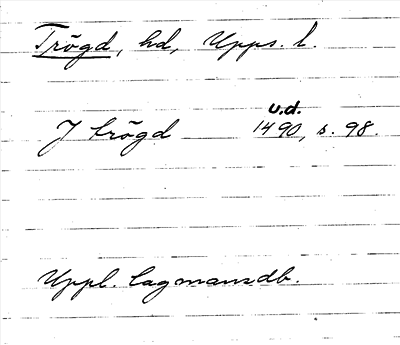 Trögd, hd, Upps. l.
u.d.
J trögd 1490, s. 98.
Uppl. lagmansdb.